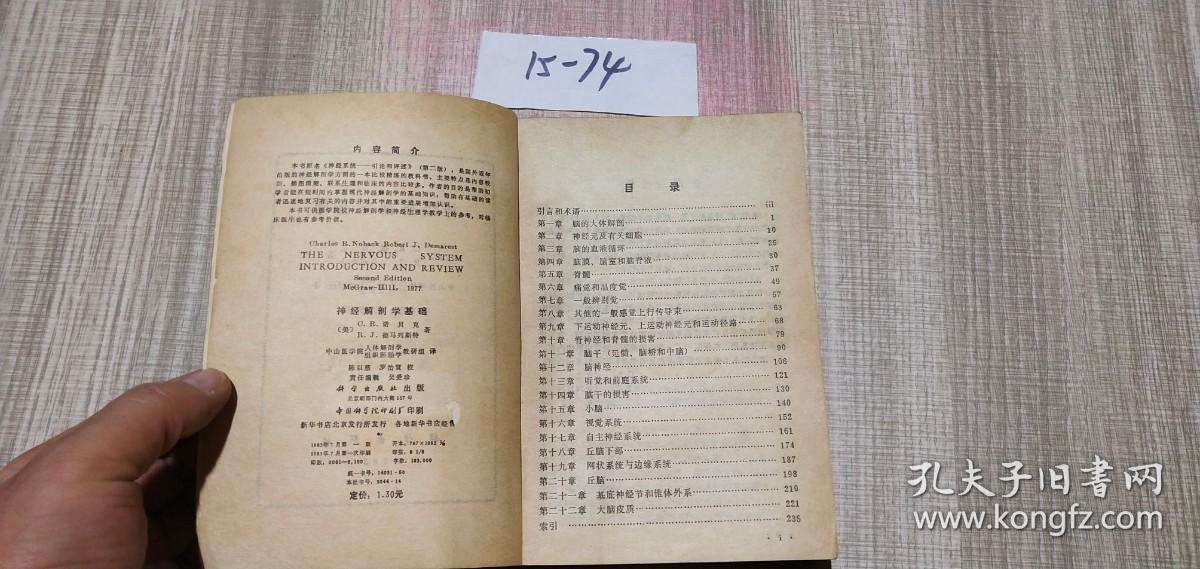 15-74
内容简介
本书原名《神经系统——引论和评述》(第二版),是国外近年
出版的神经解剖学方面的一本比较精练的教科书。主要特点是内容较
新,插图清楚,联系生理和临床的内容比较多。作者的目的是帮助初
学者能在短时间内掌握现代神经解剖学的基础知识;帮助有基础的读
者迅速地复习有关的内容并对其中的重要进展增加认识。
本书可供医学院校神经解剖学和神经生理学教学上的参考,对临
床医作也有参考价值。
Charles R. Noback Robert J. Demarest
THE NERVOUS SYSTEM
INTRODUCTION AND REVIEW
Second Edition
McGraw-Hill, 1977
神经解剖学基础
〔美〕 C. R. 诺贝克 著
R. J. 德马列斯特
中山医学院 人体解剖学 教研组 译
组织胚胎学
陈以慈 罗治贤 校
责任编辑 吴爱珍
科学出版社出版
北京朝阳门内大街137号
中国科学院印刷厂印刷
新华书店北京发行所发行 各地新华书店经售
1983年7月第一版 开本:787×1092
1983年7月第一次印刷 印张:
印数:0001— 字数:183,000
统一书号:14031·50
本社书号:3044·14
定价:1.30元
目录
引言和术语 iii
第一章 脑的大体解剖 1
第二章 神经元及有关细胞 10
第三章 脑的血液循环 25
第四章 脑膜、脑室和脑脊液 30
第五章 脊髓 37
第六章 痛觉和温度觉 49
第七章 一般辨别觉 57
第八章 其他的一般感觉上行传导束 63
第九章 下运动神经元、上运动神经元和运动径路 68
第十章 脊神经和脊髓的损害 79
第十一章 脑干(延髓、脑桥和中脑) 90
第十二章 脑神经 106
第十三章 听觉和前庭系统 121
第十四章 脑干的损害 130
第十五章 小脑 140
第十六章 视觉系统 152
第十七章 自主神经系统 161
第十八章 丘脑下部 174
第十九章 网状系统与边缘系统 187
第二十章 丘脑 198
第二十一章 基底神经节和锥体外系 210
第二十二章 大脑皮质 221
索引 235
· i ·
孔夫子旧书网
www.kongfz.com